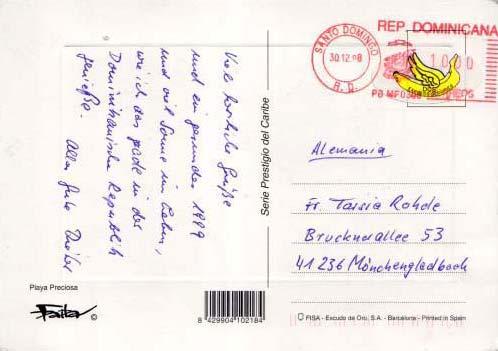 REP. DOMINICANA
SANTO DOMINGO
30.12.98
R. D.
1000
PB MF0308
Viele herzliche Grüße
und ein gesundes 1999
und viel Sonne im Leben,
wie ich das gerade in der
Dominikanische Republik
genieße.
Alles Gute
Serie Prestigio del Caribe
Alemania
Fr. Tarsia Rohde
Brucknerallee 53
41 236 Mönchengladbach
Playa Preciosa
©
8 429904 102184
FISA - Escudo de Oro, S.A. - Barcelona - Printed in Spain